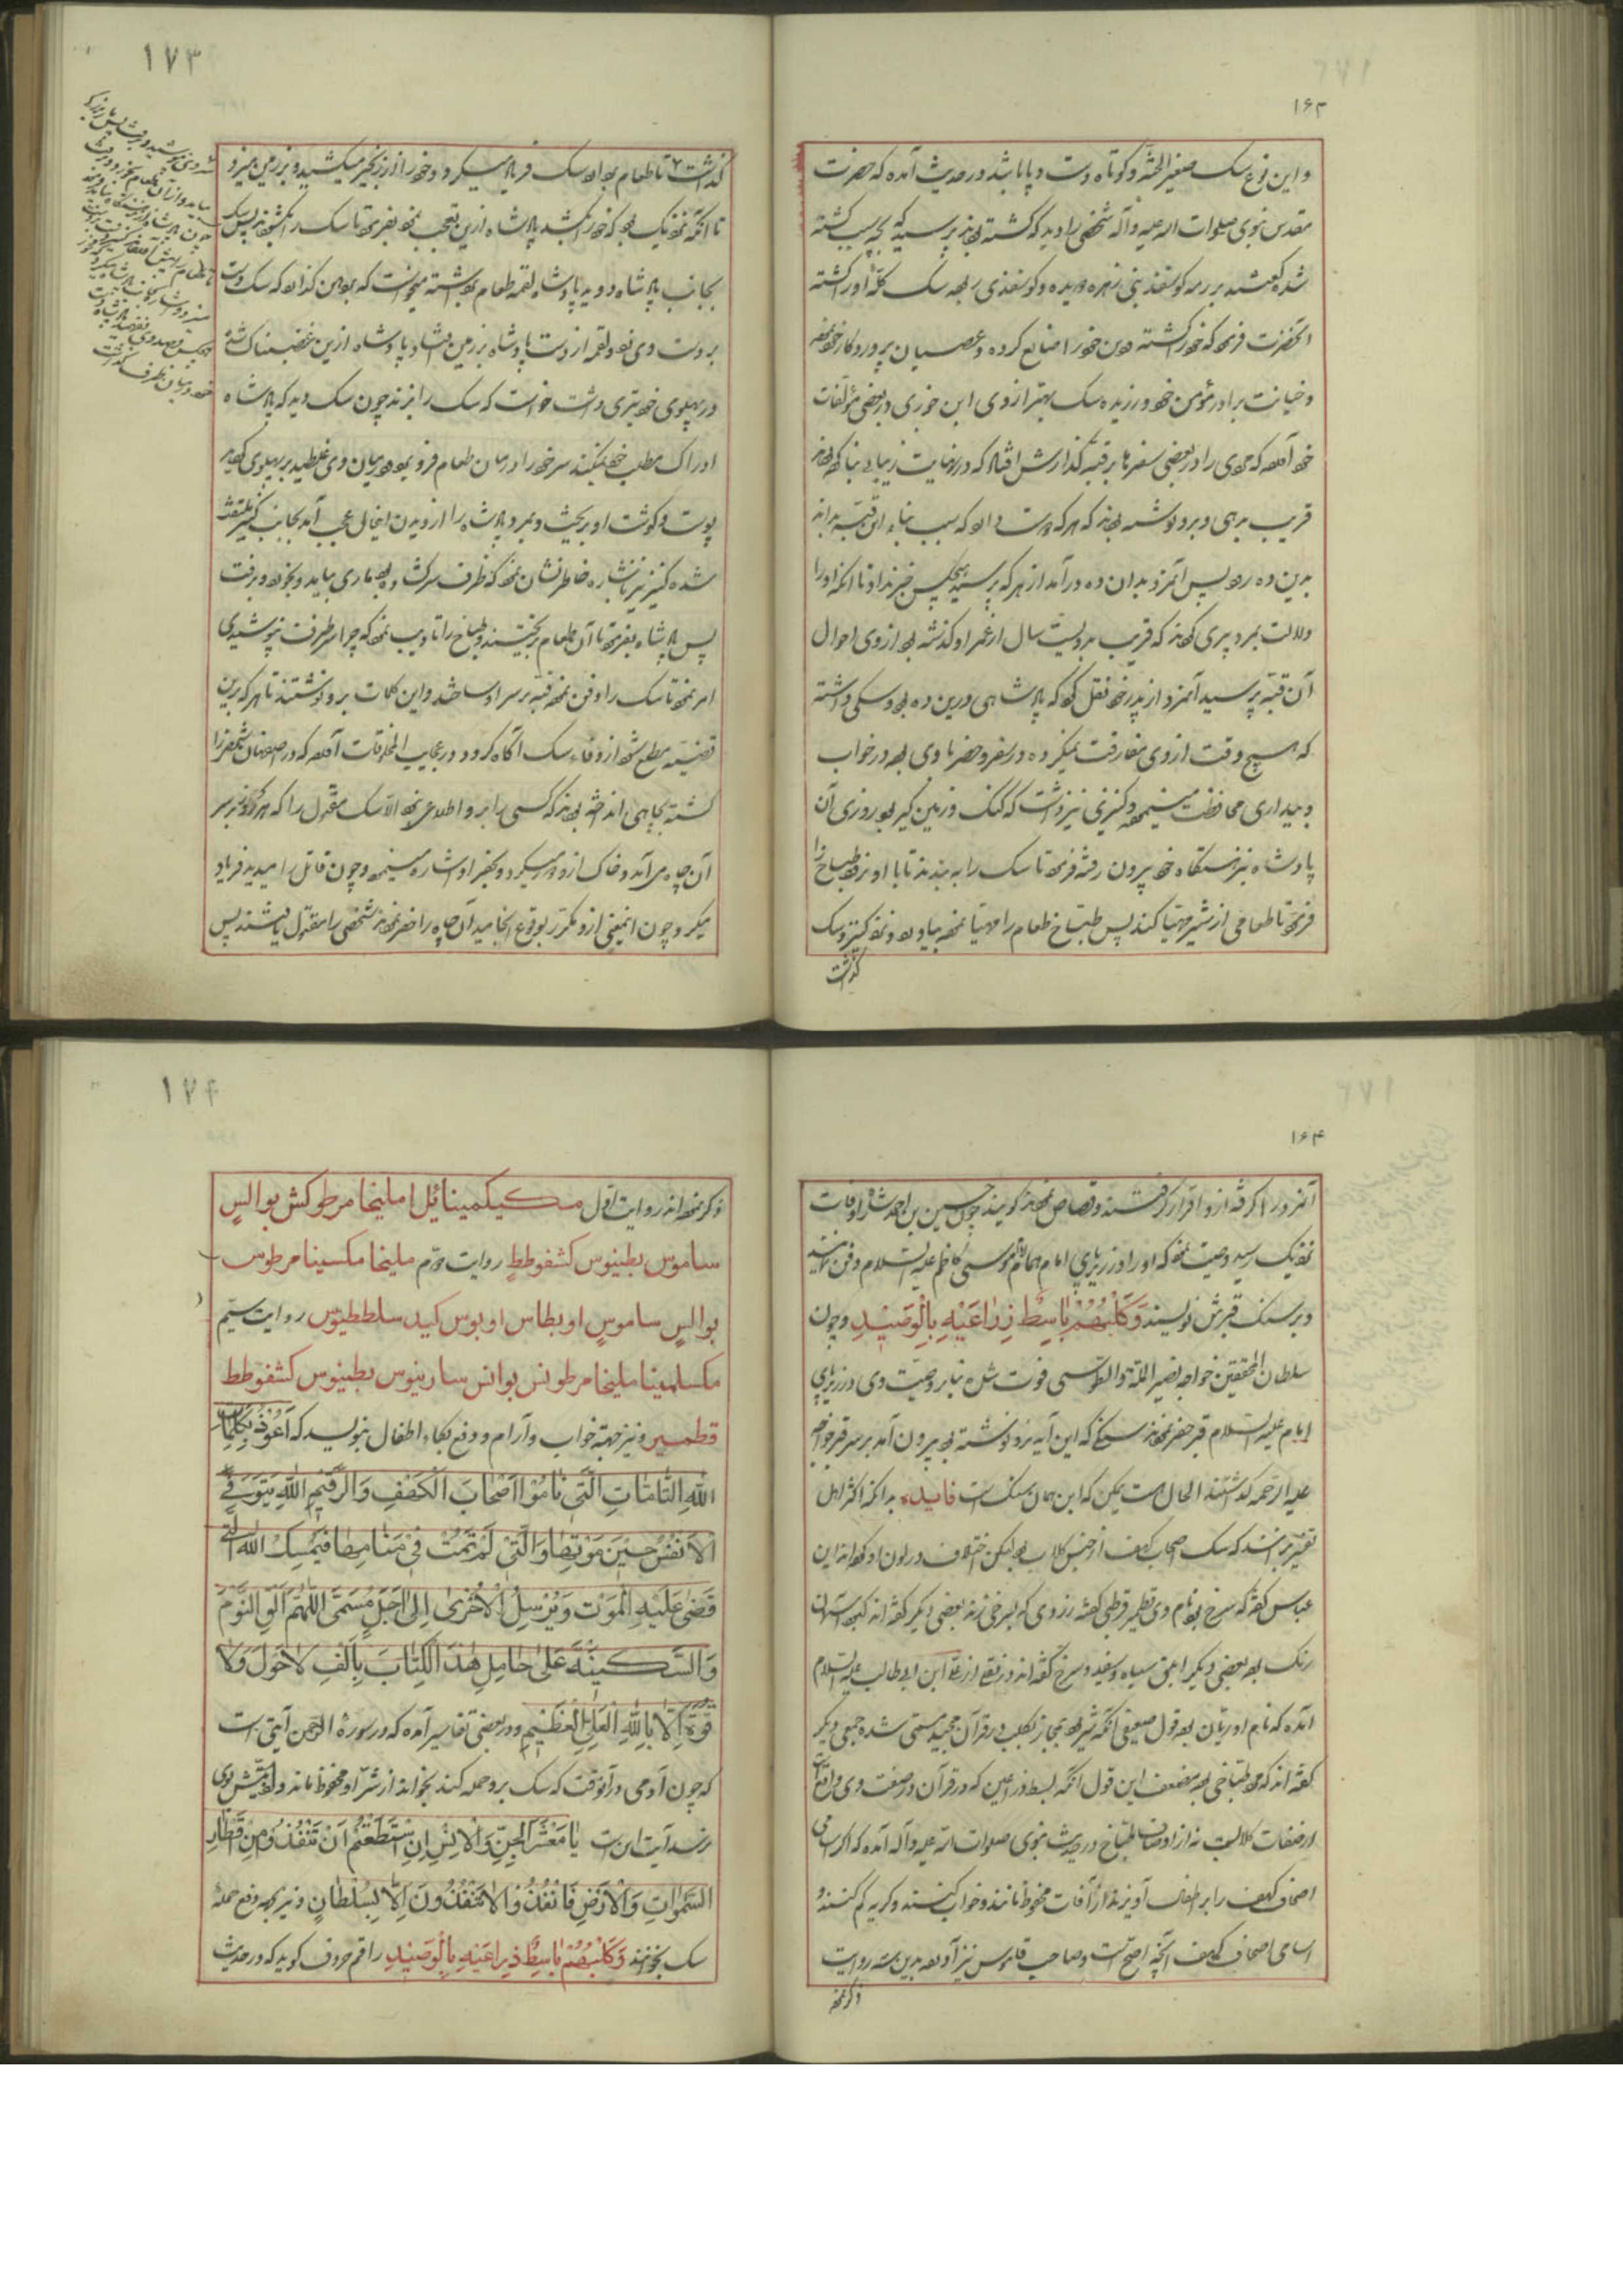 ۱۶۳
و این نوع سک صغیر الجثه و کوتاه دست و پا باشد و در حدیث آمده که حضرت
مقدس نبوی صلوات الله علیه وآله شخصی را دید که کشته بودند پرسید که بچه سبب کشته
شده گفتند بر رمه کوسفند بنی زهره دویده و کوسفندی ربوده سک کله او را کشته
آنحضرت فرمود که خود را کشته و دین خود را ضایع کرده و عصیان پروردکار خود نموده
و خیانت برادر مؤمن خود ورزیده سک بهتر از وی ابن جوزی در بعضی مؤلفات
خود آورده که مردی را در بعضی سفرها بر قبه گذارش افتاد که در نهایت زیبایی بنا کرده بودند
قریب بدهی و برو نوشته بودند که هرکه خواهد که سبب بناء این قبه بداند
بدین ده رود پس آنمرد بدان ده درآمد از هرکه پرسید هیچکس خبر نداد تا آنکه او را
دلالت بمرد پیری کردند که قریب بدویست سال از عمر او گذشته بود از وی احوال
آن قبه پرسید آنمرد از پدر خود نقل کرد که پادشاهی درین ده بود و سکی داشته
که هیچ وقت از وی مفارقت نمیکرده و در سفر و حضر با وی بوده در خواب
و بیداری محافظت مینموده و کنیزی نیز داشت که گنگ و زمین کیر بود روزی آن
پادشاه بنزهتگاه خود بیرون رفته فرمود تا سک را به بندند تا با او نرود و طباخ را
فرمود تا طعامی از شیر مهیا کند پس طباخ طعام را مهیا نموده بیاورد و نزد کنیز و سک
گذاشت
۱۷۳
گذاشت تا طعام بود آن سک فریاد میکرد و خود را از زنجیر میکشید و بر زمین میزد
تا آنکه نزدیک بود که خود را بکشد پادشاه ازین تعجب نمود بفرمود تا سک را بکشودند پس سک
بجانب پادشاه دوید پادشاه لقمه طعام برداشته میخواست که بدهن گذارد که سک دست
بر دست وی زد و لقمه از دست پادشاه بر زمین افتاد پادشاه ازین غضبناک شده
در پهلوی خود تیری داشت خواست که سک را بزند چون سک دید که پادشاه
ادراک مطلب خود نمیکند سر خود را در میان طعام فرو برد و میان وی غلطید بر پهلوی خود
پوست و گوشت او بریخت و بمرد پادشاه را از دیدن اینحال عجب آمد بجانب کنیز ملتفت
شده کنیز نیز باشاره خاطرنشان نمود که ظرف سرگشاده بود ماری بیامد و بخورد و برفت
پس پادشاه بفرمود تا آن طعام بریختند و طباخ را تادیب نمود که چرا سر ظرف نپوشیدی
امر نمود تا سک را دفن نموده قبه بر سر او ساختند و این کلمات برو نوشتند تا هرکه برین
قضیه مطلع شود از وفاء سک آگاه گردد و در عجایب المخلوقات آورده که در اصفهان شخصی را
کشته بچاهی انداخته بودند که کسی را برو اطلاعی نبود الا سک مقتول را که هر روز بر سر
آن چاه می‌آمد و خاک از و دور میکرد و بحفر او اشاره مینمود و چون قاتل را میدید فریاد
میکرد چون اینمعنی ازو مکرر بوقوع انجامید آن چاه را حفر نمودند شخصی را مقتول یافتند پس
۱۶۴
آنمرد را گرفته ازو اقرار گرفتند و قصاص نمودند گویند چون حسین بن احمد شاعر را وفات
نزدیک رسید وصیت نمود که او را در زیر پای امام همام موسی کاظم علیه السلام دفن نمایند
و بر سنگ قبرش نویسند وَكَلْبُهُمْ بَاسِطٌ ذِرَاعَيْهِ بِالْوَصِيدِ و چون
سلطان المحققین خواجه نصیر الملة والدین الطوسی فوت شد بنابر وصیت وی در زیر پای
امام علیه السلام قبر حفر نمودند سنگی که این آیه برو نوشته بود بیرون آمد بر سر قبر خواجه
علیه الرحمه گذاشتند الحال هست یمکن که این همان سنگ است فایده بدانکه اکثر اهل
تفسیر برانند که سک اصحاب کهف از جنس کلاب بود لیکن اختلاف در لون او کرده‌اند ابن
عباس گفته که سرخ بود نام وی قطمیر قرطبی گفته زردی که بسرخی زند بعضی دیگر گفته‌اند کبود آسمان
رنگ بود بعضی دیگر ابلق سیاه و سفید و سرخ گفته‌اند و نقل از علی ابن ابی طالب علیه السلام
آمده که نام او ریان بود قول ضعیفی آنکه شیر بود بمجاز بکلب در قرآن مجید مسمی شده جمعی دیگر
گفته‌اند که مرد طباخی بود مضعف این قول آنکه بسط ذراعین که در قرآن در صفت وی واقعست
از صفات کلابست نه از اوصاف طباخ در حدیث نبوی صلوات الله علیه وآله آمده که اگر اسامی
اصحاب کهف را بر اطفال آویزند از آفات محفوظ مانند و خواب کنند و گریه کم کنند و
اسامی اصحاب کهف آنچه اصح است و صاحب قاموس نیز آورده بدین سه روایت
ذکر نموده
۱۷۴
ذکر نموده‌اند روایت اول مکیکمینائیل املیخا مرطوکش بوالس
ساموس بطینوس کشفوطط روایت دوم ملیخا مکسینا مرطوس
بوالس ساموس اوبطاس اوبوس کید سلططیوس روایت سیم
مکسلمینا ملیخا مرطونس بوانس سارینوس بطنیوس کشفوطط
قطمیر و نیز جهة خواب و آرام و دفع بکاء اطفال بنویسد که أَعُوذُ بِكَلِمَاتِ
اللهِ التَّامَّاتِ الَّتِي نَامُوا أَصْحَابَ الْكَهْفِ وَالرَّقِيمِ اللهُ يَتَوَفَّى
الْأَنْفُسَ حِينَ مَوْتِهَا وَالَّتِي لَمْ تَمُتْ فِي مَنَامِهَا فَيُمْسِكُ اللهُ الَّتِي
قَضَى عَلَيْهِ الْمَوْتَ وَيُرْسِلُ الْأُخْرَى إِلَى أَجَلٍ مُسَمًّى اللَّهُمَّ أَلْقِ النَّوْمَ
وَالسَّكِينَةَ عَلَى حَامِلِ هَذَا الْكِتَابِ بِأَلْفِ لَا حَوْلَ وَلَا
قُوَّةَ إِلَّا بِاللهِ الْعَلِيِّ الْعَظِيمِ و در بعضی تفاسیر آمده که در سورة الرحمن آیتی است
که چون آدمی در آنوقت که سک برو حمله کند بخواند از شر او محفوظ ماند و اذیتش بوی
نرسد آیت این است يَا مَعْشَرَ الْجِنِّ وَالْإِنْسِ إِنِ اسْتَطَعْتُمْ أَنْ تَنْفُذُوا مِنْ أَقْطَارِ
السَّمَوَاتِ وَالْأَرْضِ فَانْفُذُوا لَا تَنْفُذُونَ إِلَّا بِسُلْطَانٍ و نیز بجهة دفع حمله
سک بخوانند وَكَلْبُهُمْ بَاسِطٌ ذِرَاعَيْهِ بِالْوَصِيدِ راقم حروف گوید که در حدیث